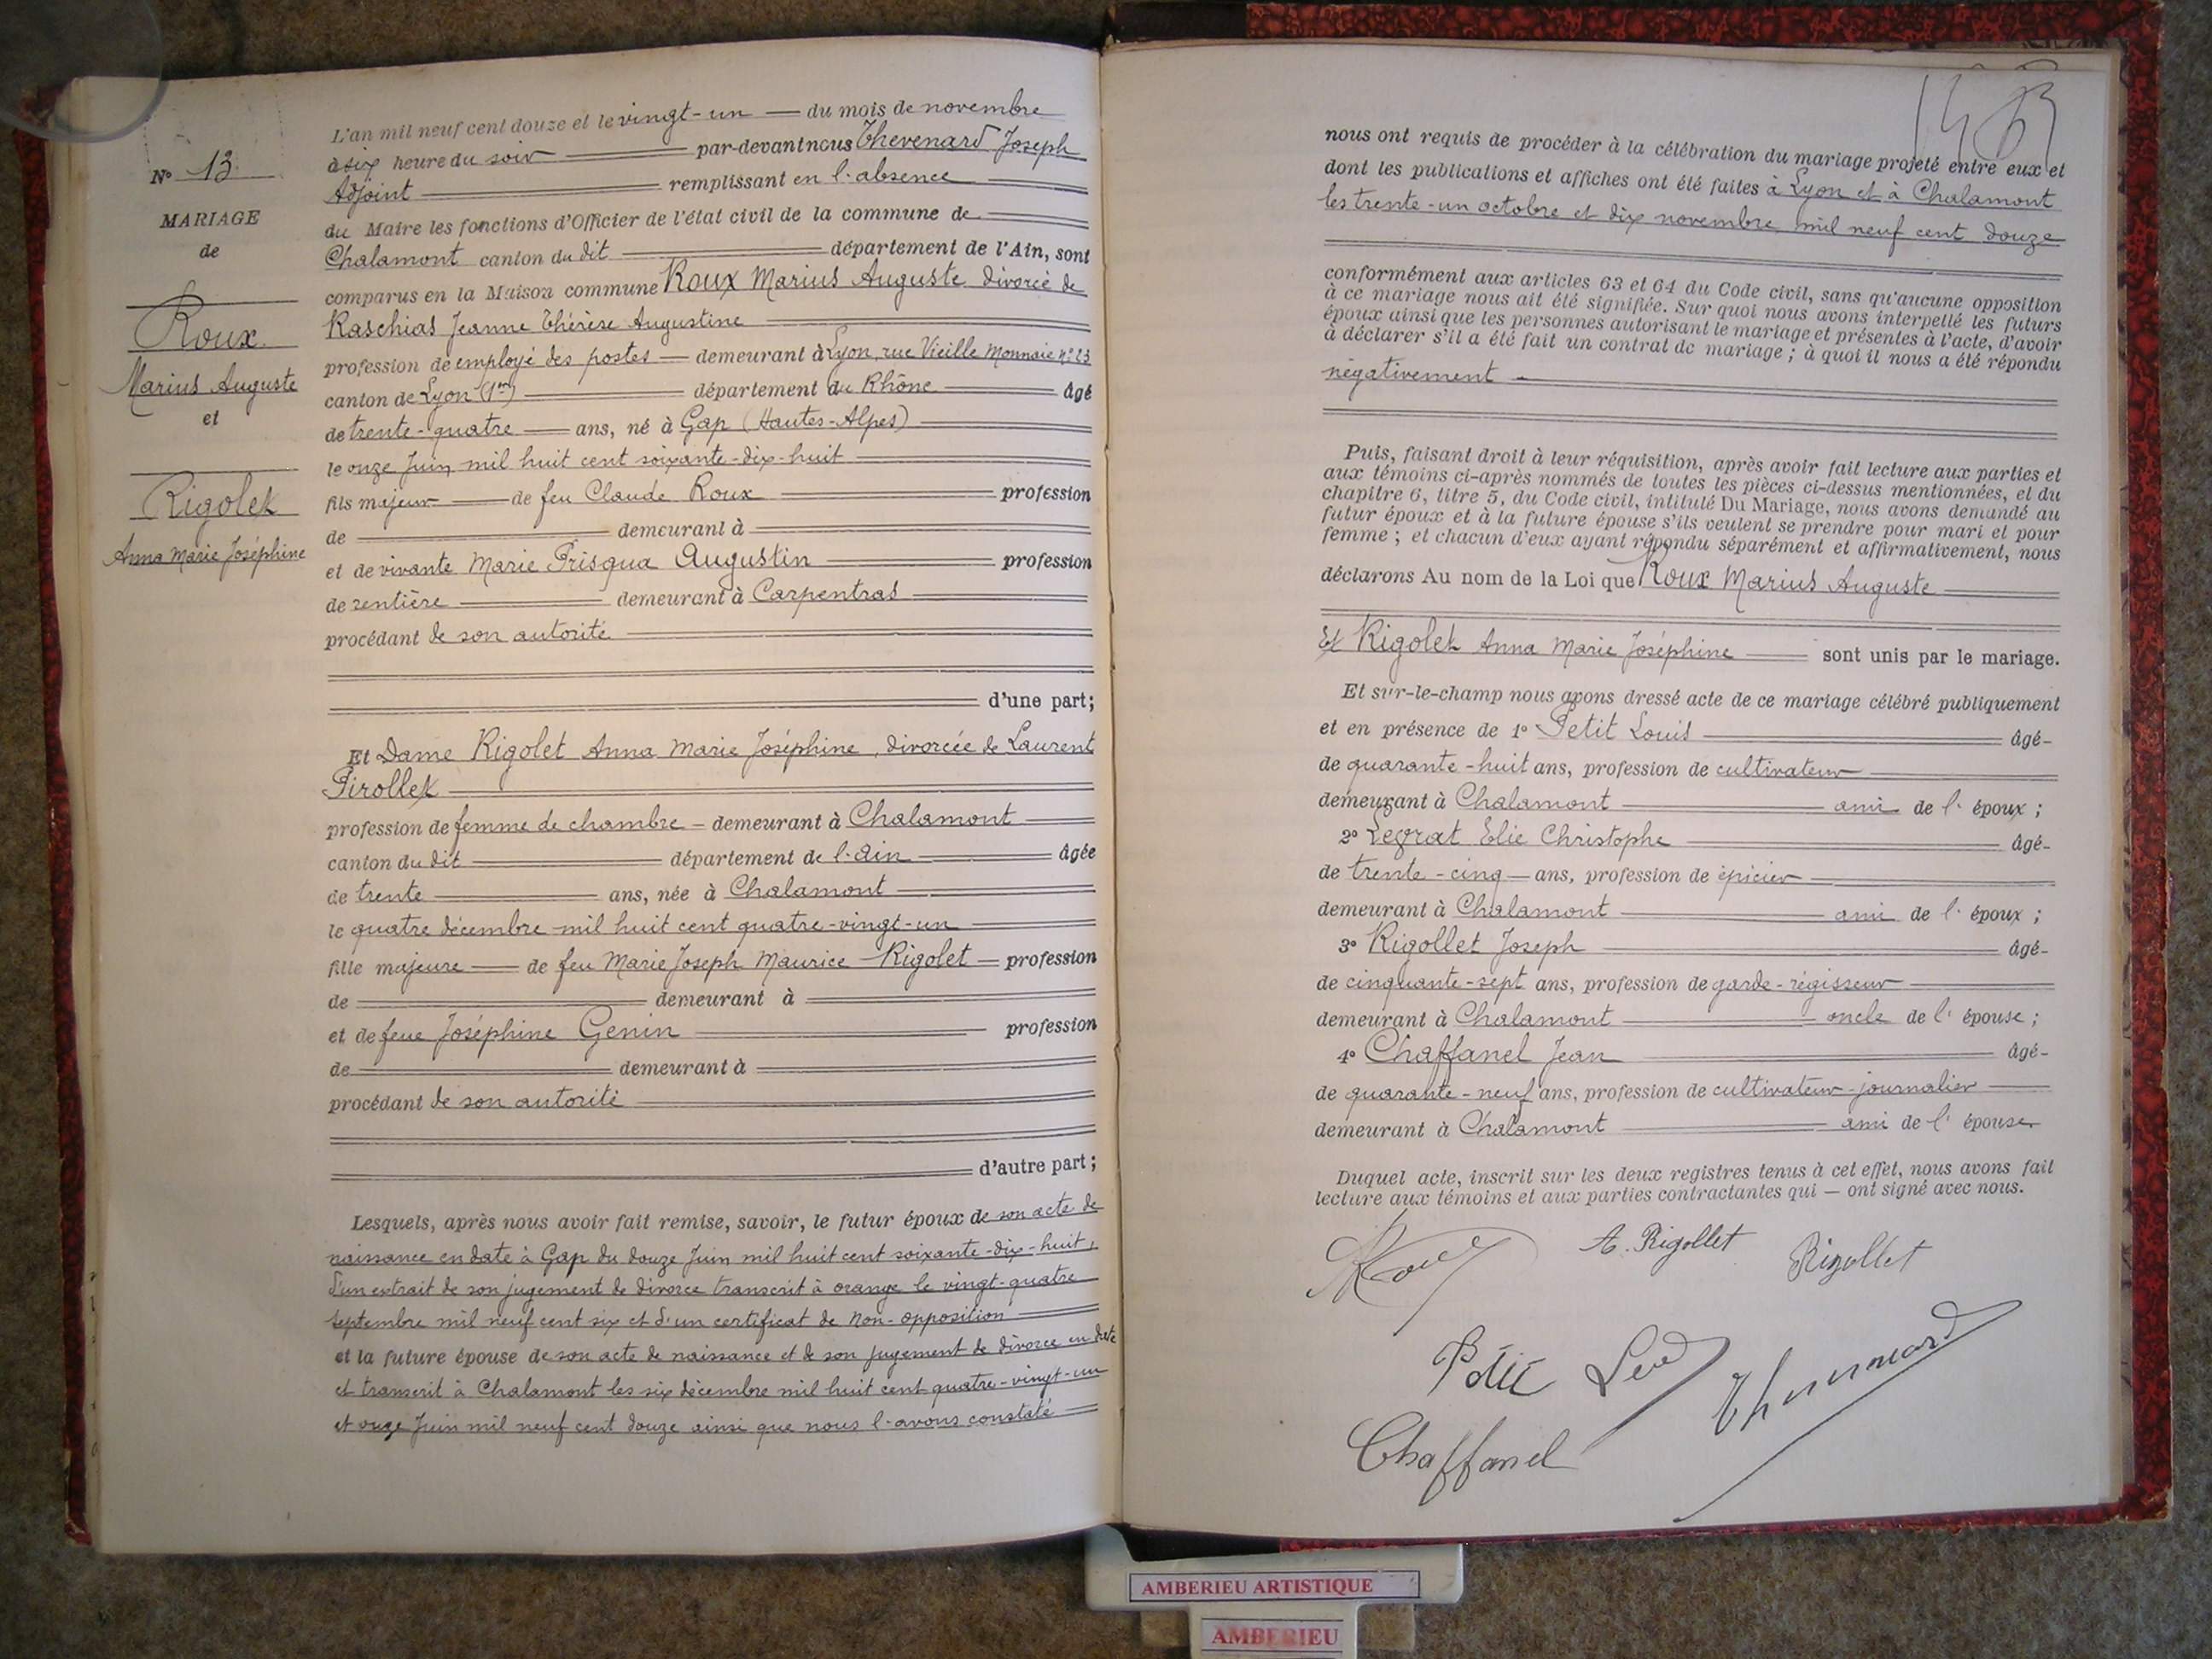 N° 13.
MARIAGE
de
Roux
Marius Auguste
et
Rigolet
Anna Marie Joséphine
L'an mil neuf cent douze et le vingt-un du mois de novembre
à six heure du soir par-devant nous Thevenard Joseph
Adjoint remplissant en l'absence
du Maire les fonctions d'Officier de l'état civil de la commune de
Chalamont canton du dit département de l'Ain, sont
comparus en la Maison commune Roux Marius Auguste divorcé de
Raschias Jeanne Thérèse Augustine
profession de employé des postes demeurant à Lyon, rue Vieille Monnaie n° 23
canton de Lyon (1er) département du Rhône âgé
de trente-quatre ans, né à Gap (Hautes-Alpes)
le onze Juin mil huit cent soixante-dix-huit
fils majeur de feu Claude Roux profession
de demeurant à
et de vivante Marie Prisqua Augustin profession
de rentière demeurant à Carpentras
procédant de son autorité
d'une part;
Et Dame Rigolet Anna Marie Joséphine, divorcée de Laurent
Pirollet
profession de femme de chambre - demeurant à Chalamont
canton du dit département de l'Ain âgée
de trente ans, née à Chalamont
le quatre décembre mil huit cent quatre-vingt-un
fille majeure de feu Marie Joseph Maurice Rigolet profession
de demeurant à
et de feue Joséphine Genin profession
de demeurant à
procédant de son autorité
d'autre part;
Lesquels, après nous avoir fait remise, savoir, le futur époux de son acte de
naissance en date à Gap du douze Juin mil huit cent soixante-dix-huit,
d'un extrait de son jugement de divorce transcrit à orange le vingt-quatre
septembre mil neuf cent six et d'un certificat de non-opposition
et la future épouse de son acte de naissance et de son jugement de divorce en date
et transcrit à Chalamont les six décembre mil huit cent quatre-vingt-un
et onze Juin mil neuf cent douze ainsi que nous l'avons constaté
nous ont requis de procéder à la célébration du mariage projeté entre eux et
dont les publications et affiches ont été faites à Lyon et à Chalamont
les trente-un octobre et dix novembre mil neuf cent douze
conformément aux articles 63 et 64 du Code civil, sans qu'aucune opposition
à ce mariage nous ait été signifiée. Sur quoi nous avons interpellé les futurs
époux ainsi que les personnes autorisant le mariage et présentes à l'acte, d'avoir
à déclarer s'il a été fait un contrat de mariage; à quoi il nous a été répondu
négativement
Puis, faisant droit à leur réquisition, après avoir fait lecture aux parties et
aux témoins ci-après nommés de toutes les pièces ci-dessus mentionnées, et du
chapitre 6, titre 5, du Code civil, intitulé Du Mariage, nous avons demandé au
futur époux et à la future épouse s'ils veulent se prendre pour mari et pour
femme; et chacun d'eux ayant répondu séparément et affirmativement, nous
déclarons Au nom de la Loi que Roux Marius Auguste
Et Rigolet Anna Marie Joséphine sont unis par le mariage.
Et sur-le-champ nous avons dressé acte de ce mariage célébré publiquement
et en présence de 1° Petit Louis âgé
de quarante-huit ans, profession de cultivateur
demeurant à Chalamont ami de l'époux;
2° Legrat Elie Christophe âgé
de trente-cinq ans, profession de épicier
demeurant à Chalamont ami de l'époux;
3° Rigollet Joseph âgé
de cinquante-sept ans, profession de garde-régisseur
demeurant à Chalamont oncle de l'épouse;
4° Chaffanel Jean âgé
de quarante-neuf ans, profession de cultivateur-journalier
demeurant à Chalamont ami de l'épouse
Duquel acte, inscrit sur les deux registres tenus à cet effet, nous avons fait
lecture aux témoins et aux parties contractantes qui — ont signé avec nous.
A. Rigollet Rigollet
Thevenard
Chaffanel
AMBERIEU ARTISTIQUE
AMBERIEU